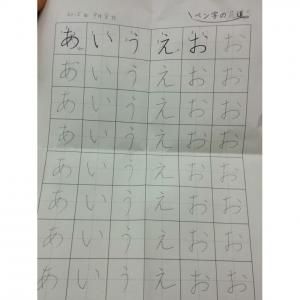 ペン字の
あいうえおお
あいうえおお
あいうえおお
あいうえおお
あいうえおお
あいうえおお
あいうえおお
あいうえおお